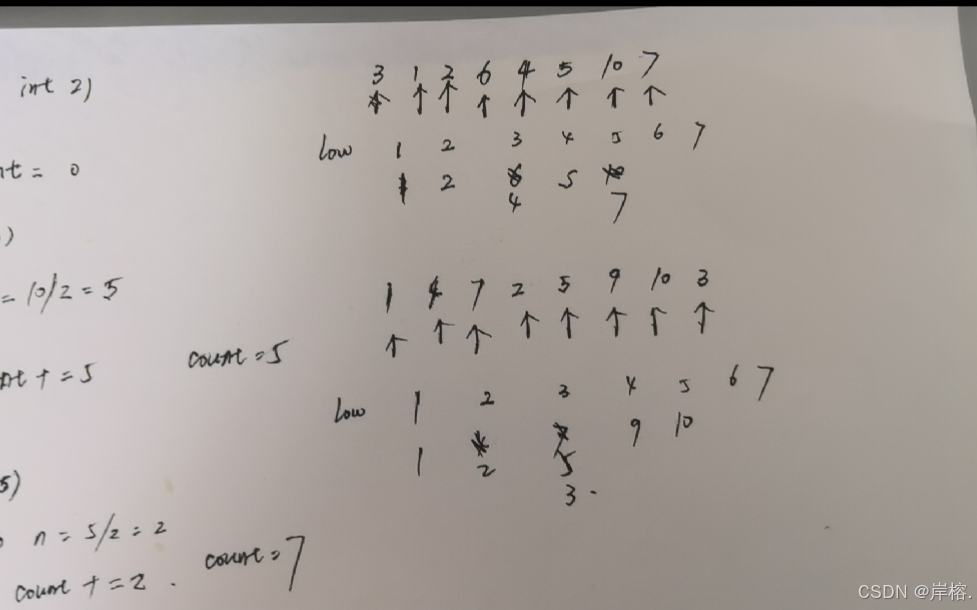 int 2)
3 1 2 6 4 5 10 7
↑ ↑ ↑ ↑ ↑ ↑ ↑ ↑
nt = 0
low 1 2 3 4 5 6 7
1 2 6 5 10
4 7
)
= 10/2 = 5
1 4 7 2 5 9 10 3
↑ ↑ ↑ ↑ ↑ ↑ ↑ ↑
nt += 5 count = 5
low 1 2 3 4 5 6 7
1 4 7 9 10
2 5
3.
5)
n = 5/2 = 2
count += 2. count = 7
CSDN @岸榕.